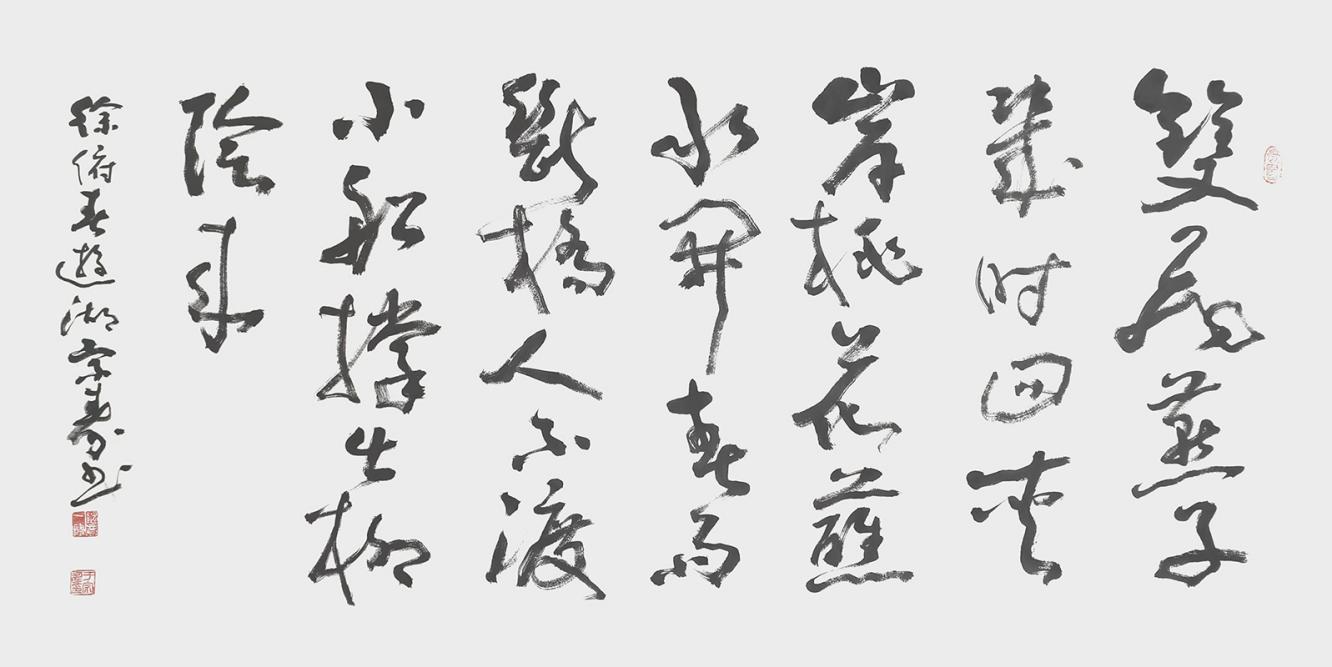 雙飛燕子
幾时回夾
岸桃花蘸
水開春雨
斷橋人不渡
小船撐出柳
陰来
徐俯春遊湖